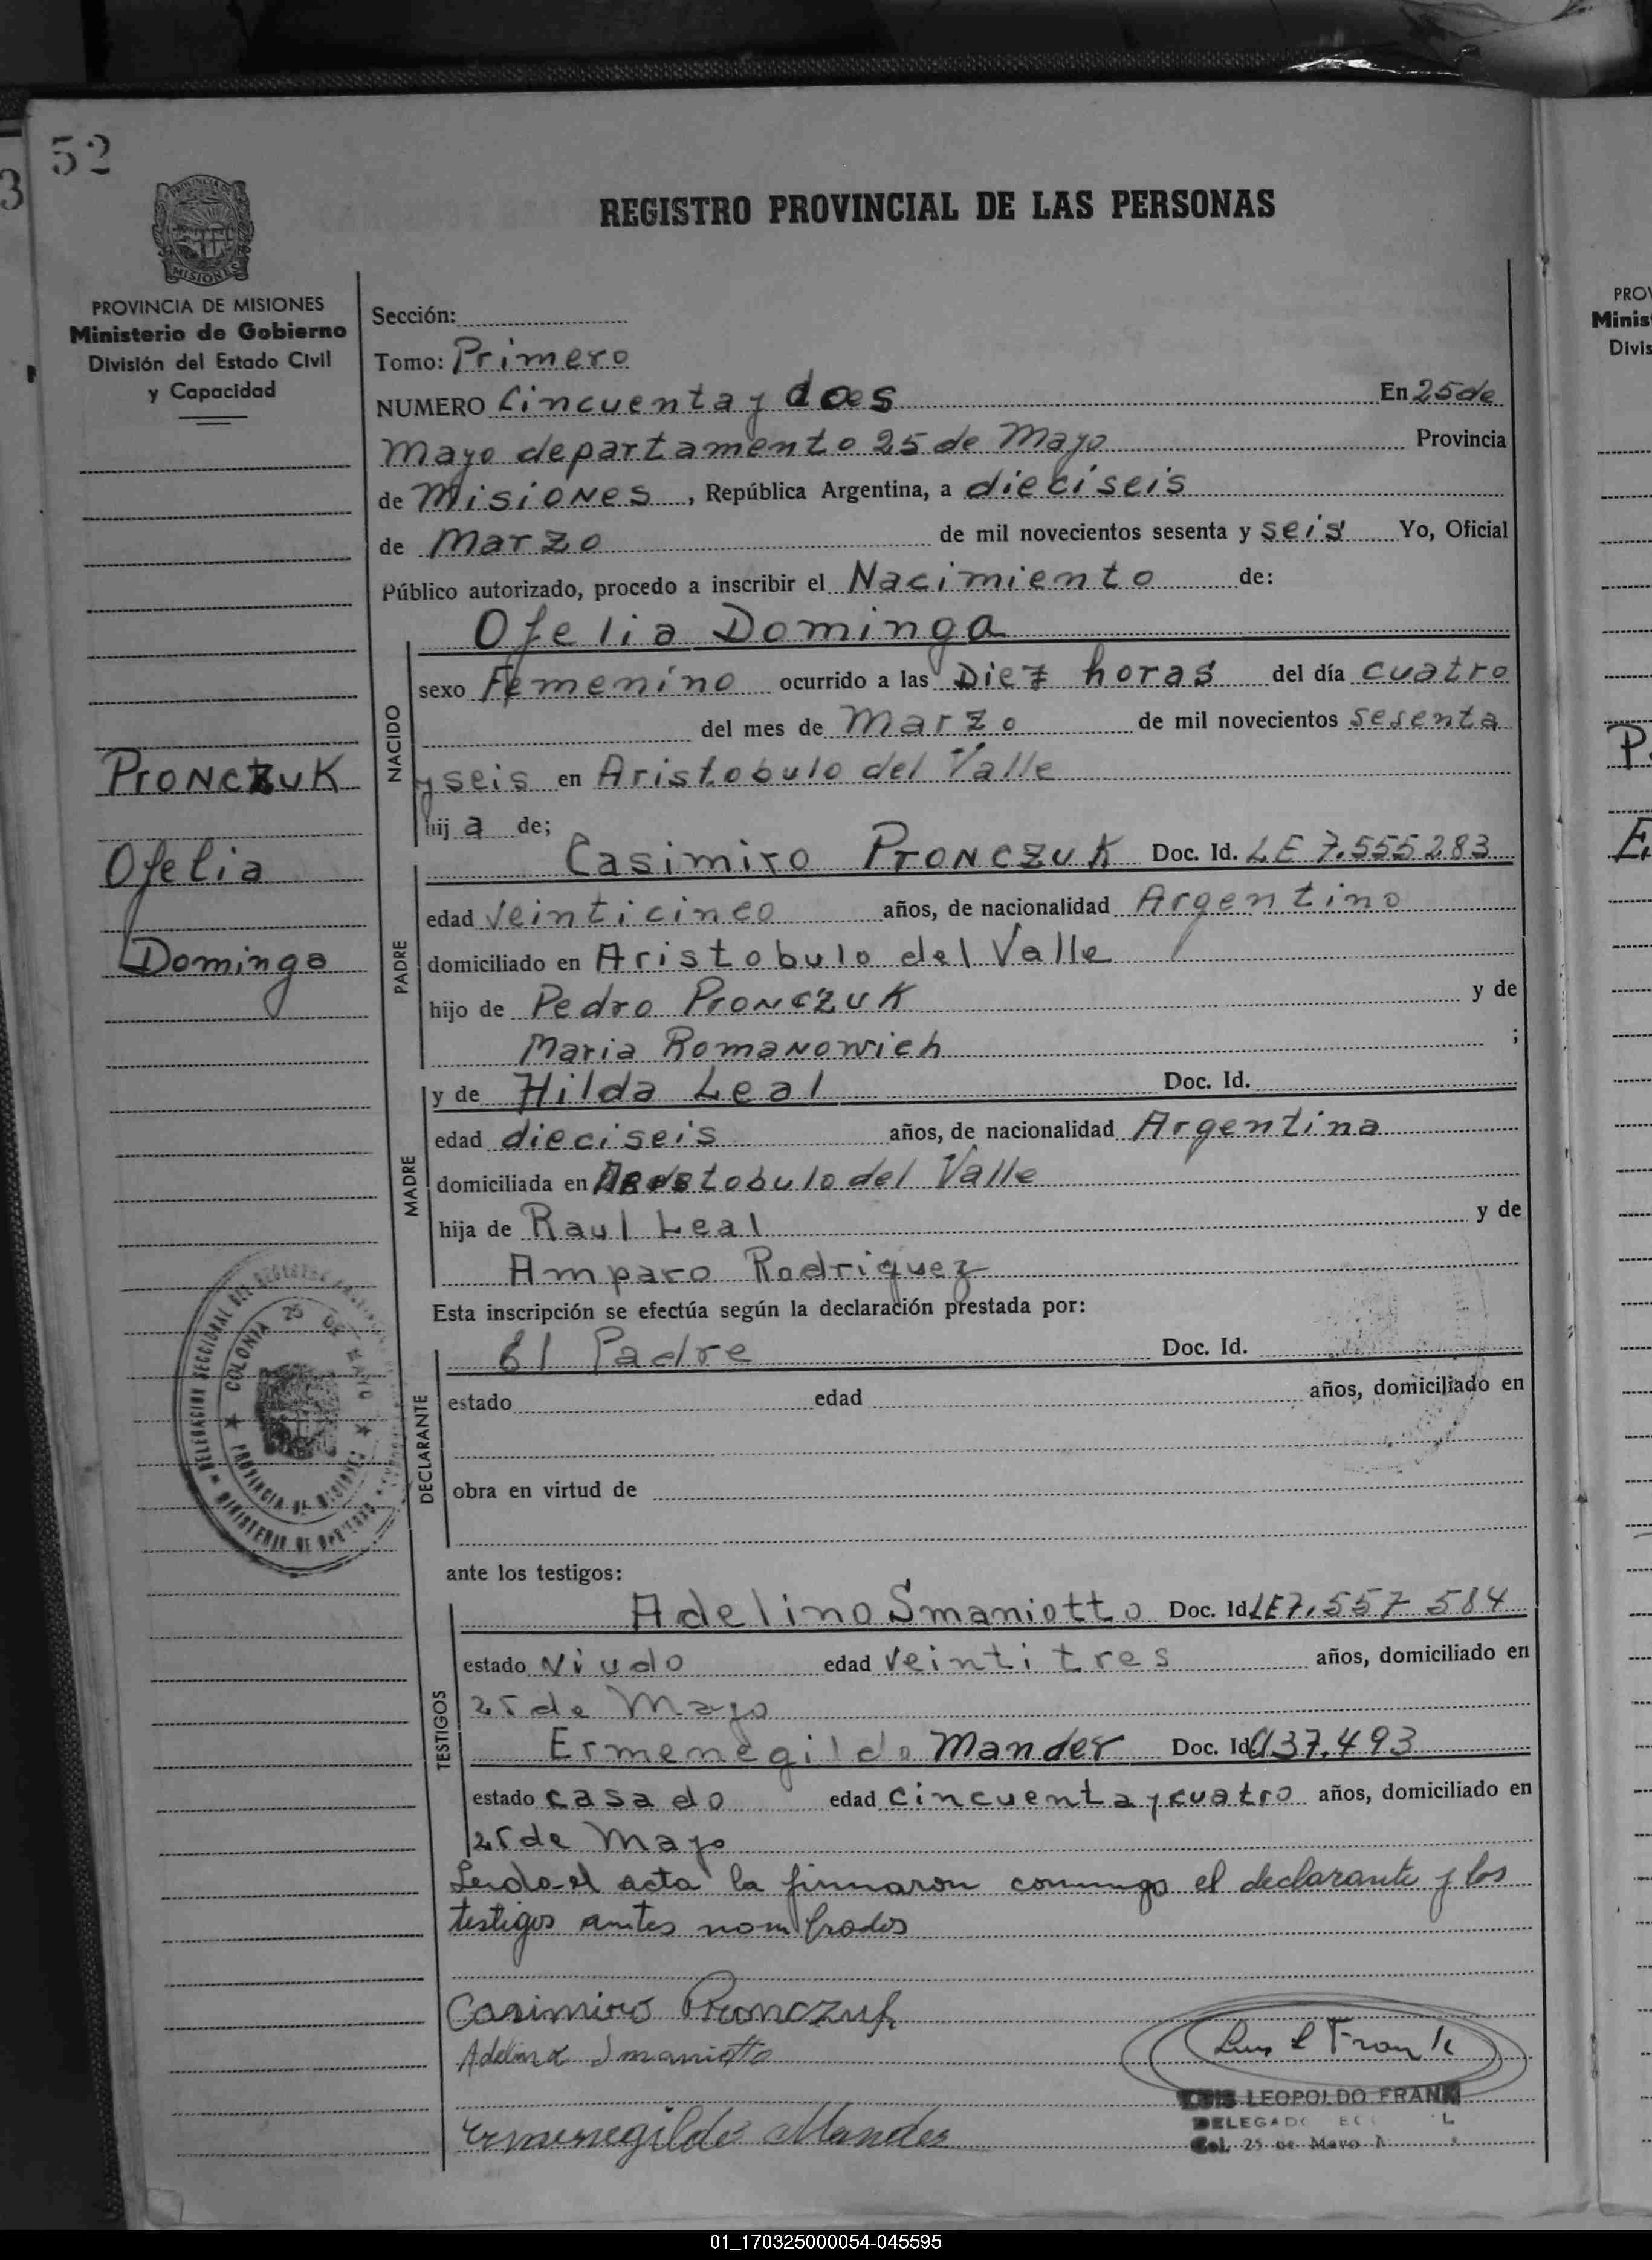 52
3
MISIONES
REGISTRO PROVINCIAL DE LAS PERSONAS
PROVINCIA DE MISIONES
Ministerio de Gobierno
División del Estado Civil
y Capacidad
PRONCZUK
Ofelia
Dominga
Sección:
Tomo: Primero
NUMERO Cincuenta y dos En 25 de
Mayo departamento 25 de Mayo Provincia
de Misiones, República Argentina, a dieciseis
de Marzo de mil novecientos sesenta y seis Yo, Oficial
Público autorizado, procedo a inscribir el Nacimiento de:
NACIDO
Ofelia Dominga
sexo Femenino ocurrido a las Diez horas del día cuatro
del mes de Marzo de mil novecientos sesenta
y seis en Aristobulo del Valle
hij a de;
PADRE
Casimiro PRONCZUK Doc. Id. LE 7.555283
edad veinticinco años, de nacionalidad Argentino
domiciliado en Aristobulo del Valle
hijo de Pedro PRONCZUK y de
Maria Romanowich ;
MADRE
y de Hilda Leal Doc. Id.
edad dieciseis años, de nacionalidad Argentina
domiciliada en Aristobulo del Valle
hija de Raul Leal y de
Amparo Rodriguez
Esta inscripción se efectúa según la declaración prestada por:
DECLARANTE
El Padre Doc. Id.
estado edad años, domiciliado en
obra en virtud de
DELEGACION SECCIONAL DEL REGISTRO
COLONIA 25 DE MAYO
PROVINCIA DE MISIONES
MINISTERIO DE GOBIERNO
ante los testigos:
TESTIGOS
Adelino Smaniotto Doc. Id. LE 7.557 584
estado Viudo edad veintitres años, domiciliado en
25 de Mayo
Ermenegildo Mander Doc. Id. 137.493
estado casado edad cincuenta y cuatro años, domiciliado en
25 de Mayo
Leida el acta la firmaron conmigo el declarante y los
testigos antes nombrados
Casimiro Pronczuk
Adelino Smaniotto
Ermenegildo Mander
Luis L Frank
LUIS LEOPOLDO FRANK
DELEGADO
Col. 25 de Mayo
PROV
Minis
Divis
01_170325000054-045595